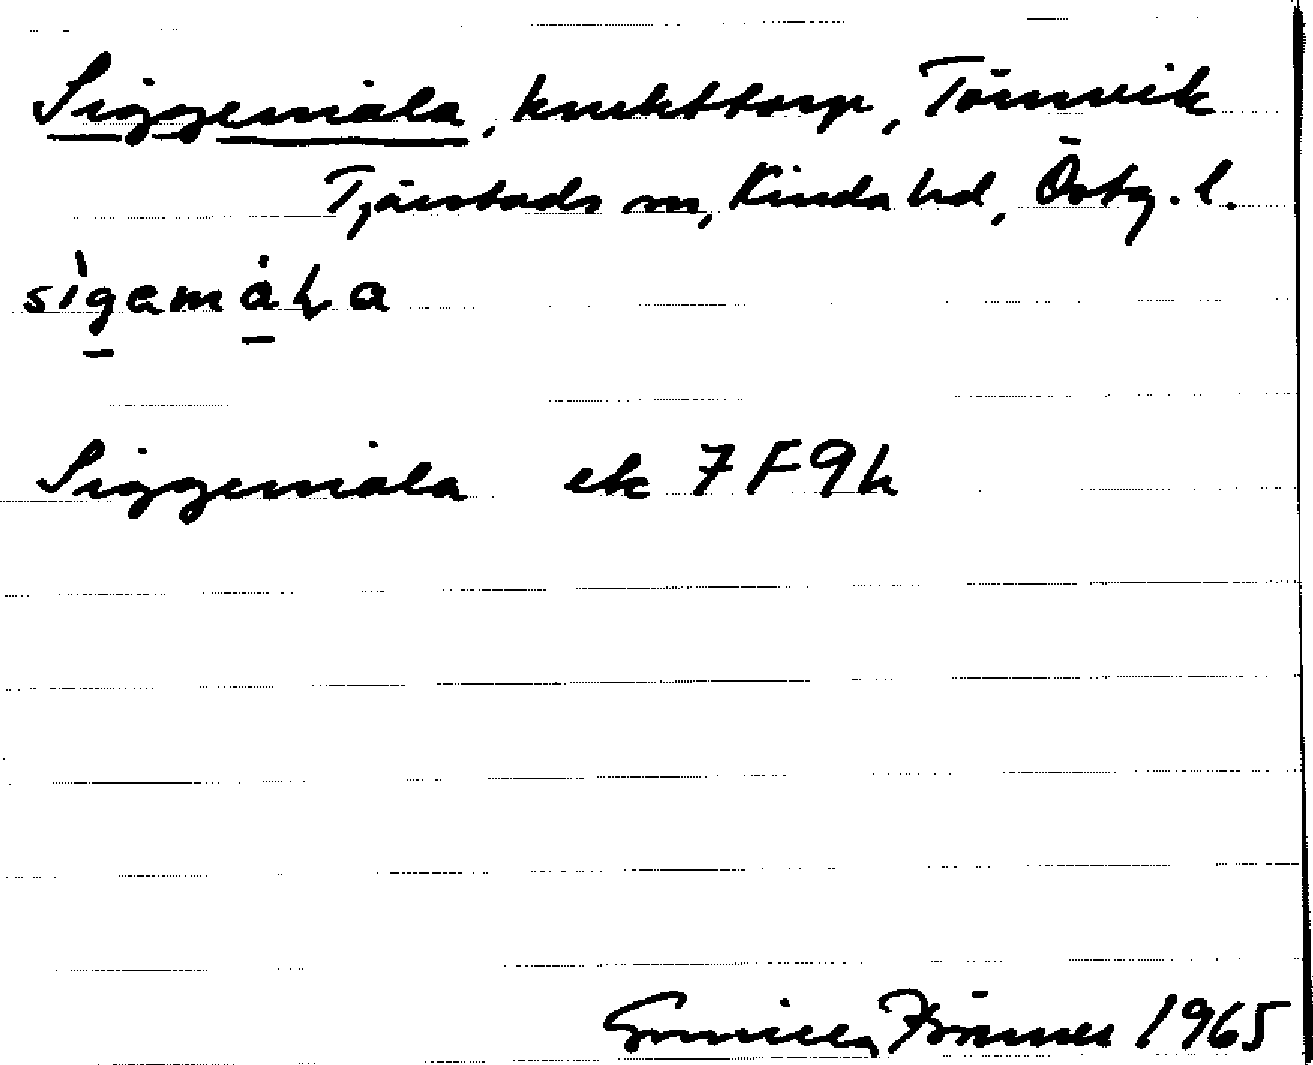 Siggemåla, knekttorp, Törnevik
Tjärstads sn, Kinda hd, Östg. l.
sìgamåла
Siggemåla ek 7F9h
Gunilla 1965